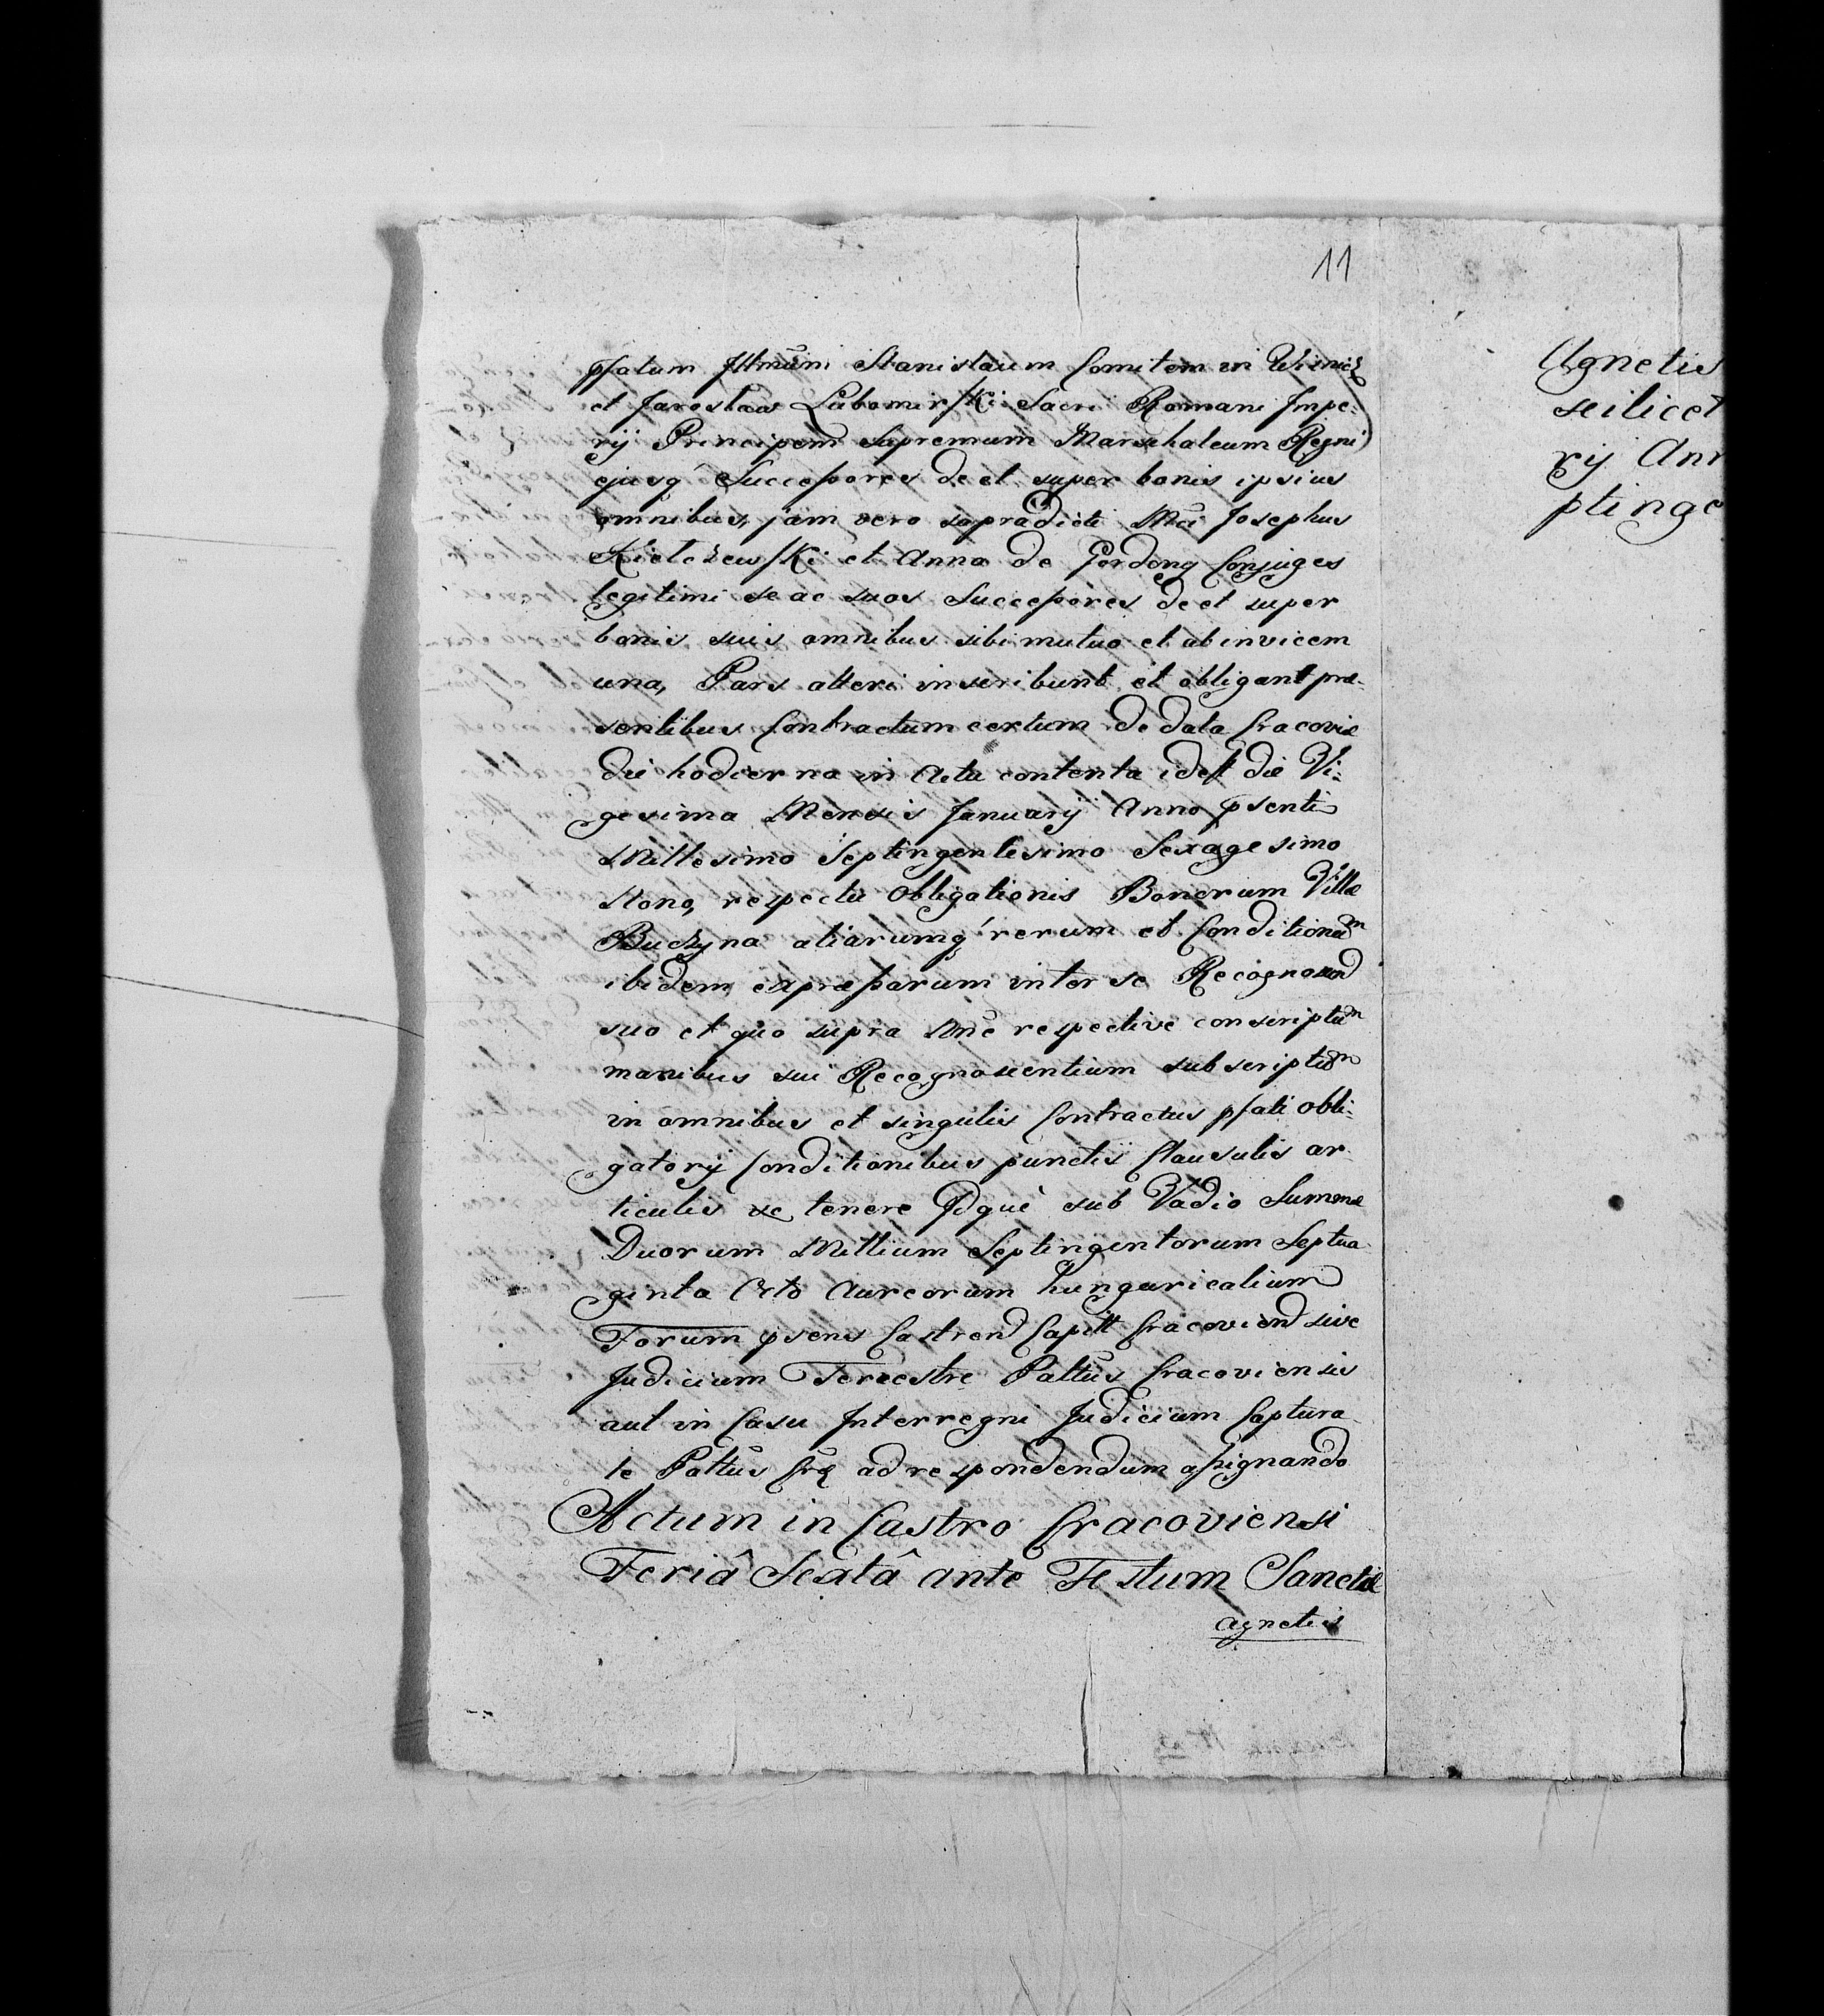 11
pſatum Jllmũm Stanislaum Comitem in Wisnicz
et Jaroslaw Lubomirſki Sacri Romani Jmpe-
rij Principem Supremum Marschalcum Regni
ejusq́ Succeſsores de et super bonis ipsius
omnibus, jam vero supradicti Mci Josephus
Kielczewſki et Anna de Gordony Conjuges
legitimi se ac suos Succeſsores de et super
bonis suis omnibus sibi mutuo et ab invicem
una, Pars alteri inscribunt et obligant præ-
sentibus Contractum certum de data Cracoviæ
die hodierna in Acta contenta ideſt die Vi-
gesima Mensis Januarij Anno p̃senti
Millesimo Septingentesimo Sexagesimo
Nono, respectu Obligationis Bonorum Villæ
Buczyna aliarumq́ rerum et Conditionum
ibidem expreſsarum inter se Recognoscend
suo et quo supra nne respective conscriptum
manibus sui Recognoscentium subscriptum
in omnibus et singulis Contractus pſati obli-
gatorij Conditionibus punctis Clausulis ar-
ticulis se tenere Jdque sub Vadio Summæ
Duorum Millium Septingentorum Septua-
ginta Octo Aureorum hungaricalium
Forum p̃sens Castrens Capitt Cracovien sive
Judicium Terrestre Pallũs Cracoviensis
aut in Casu Jnterregni Judicium Captura-
le Pallũs Crac ad respondendum aſsignando
Actum in Castro Cracoviensi
Feriâ Sextâ ante Festum Sanctæ
Agnetis
Agnetis
scilicet
rij Ann
ptinge